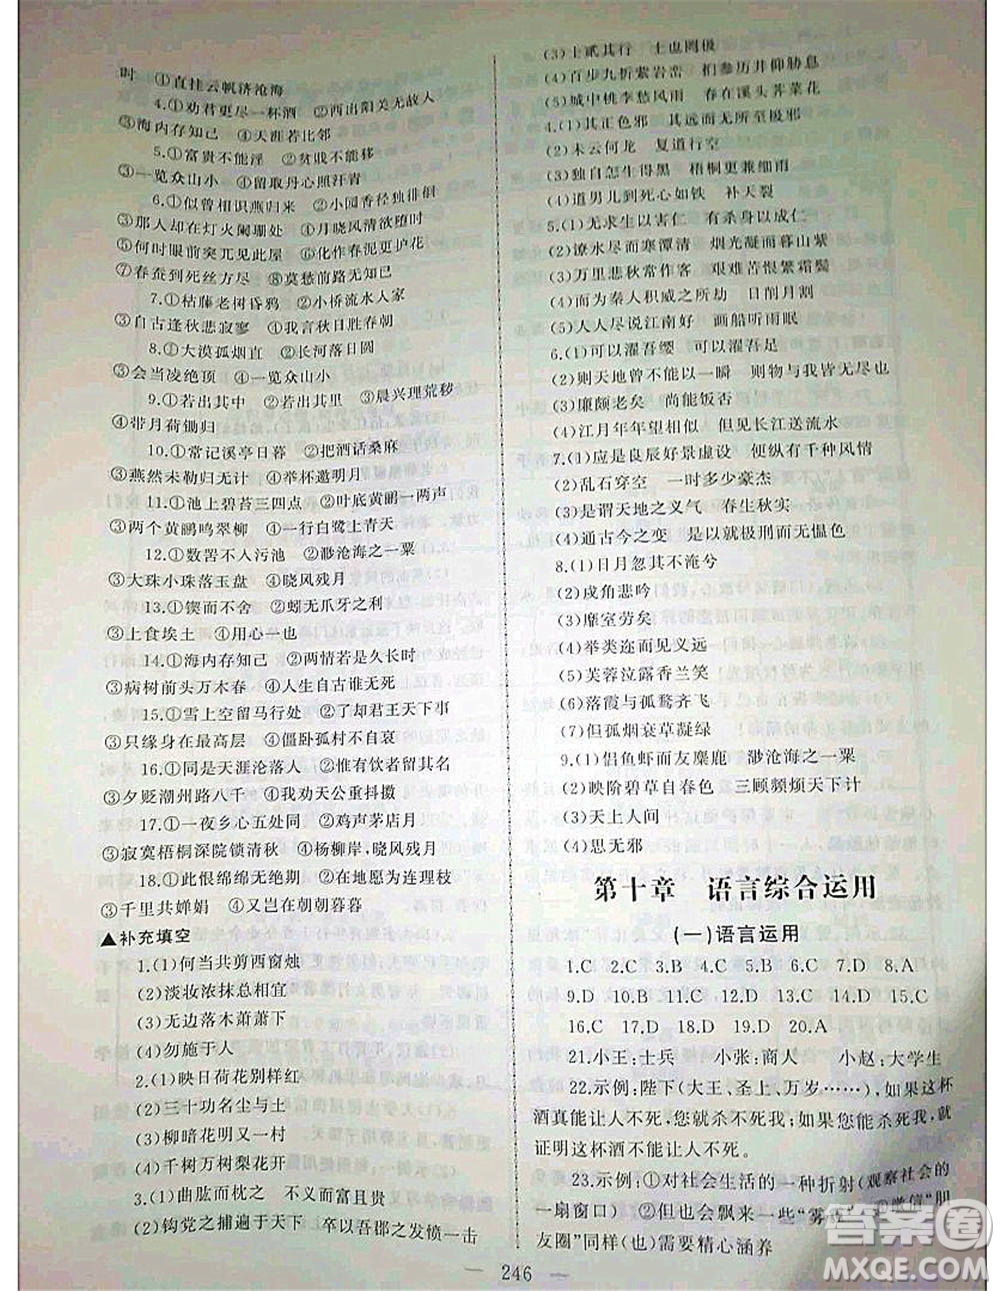 时　①直挂云帆济沧海
4.①劝君更尽一杯酒　②西出阳关无故人
③海内存知己　④天涯若比邻
5.①富贵不能淫　②贫贱不能移
③一览众山小　④留取丹心照汗青
6.①似曾相识燕归来　②小园香径独徘徊
③那人却在灯火阑珊处　④月晓风清欲堕时
⑤何时眼前突兀见此屋　⑥化作春泥更护花
⑦春蚕到死丝方尽　⑧莫愁前路无知己
7.①枯藤老树昏鸦　②小桥流水人家
③自古逢秋悲寂寥　④我言秋日胜春朝
8.①大漠孤烟直　②长河落日圆
③会当凌绝顶　④一览众山小
9.①若出其中　②若出其里　③晨兴理荒秽
④带月荷锄归
10.①常记溪亭日暮　②把酒话桑麻
③燕然未勒归无计　④举杯邀明月
11.①池上碧苔三四点　②叶底黄鹂一两声
③两个黄鹂鸣翠柳　④一行白鹭上青天
12.①数罟不入污池　②渺沧海之一粟
③大珠小珠落玉盘　④晓风残月
13.①锲而不舍　②蚓无爪牙之利
③上食埃土　④用心一也
14.①海内存知己　②两情若是久长时
③病树前头万木春　④人生自古谁无死
15.①雪上空留马行处　②了却君王天下事
③只缘身在最高层　④僵卧孤村不自哀
16.①同是天涯沦落人　②惟有饮者留其名
③夕贬潮州路八千　④我劝天公重抖擞
17.①一夜乡心五处同　②鸡声茅店月
③寂寞梧桐深院锁清秋　④杨柳岸,晓风残月
18.①此恨绵绵无绝期　②在地愿为连理枝
③千里共婵娟　④又岂在朝朝暮暮
▲补充填空
1.(1)何当共剪西窗烛
(2)淡妆浓抹总相宜
(3)无边落木萧萧下
(4)勿施于人
2.(1)映日荷花别样红
(2)三十功名尘与土
(3)柳暗花明又一村
(4)千树万树梨花开
3.(1)曲肱而枕之　不义而富且贵
(2)钩党之捕遍于天下　卒以吾郡之发愤一击
(3)士贰其行　士也罔极
(4)百步九折萦岩峦　扪参历井仰胁息
(5)城中桃李愁风雨　春在溪头荠菜花
4.(1)其正色邪　其远而无所至极邪
(2)未云何龙　复道行空
(3)独自怎生得黑　梧桐更兼细雨
(4)道男儿到死心如铁　补天裂
5.(1)无求生以害仁　有杀身以成仁
(2)潦水尽而寒潭清　烟光凝而暮山紫
(3)万里悲秋常作客　艰难苦恨繁霜鬓
(4)而为秦人积威之所劫　日削月割
(5)人人尽说江南好　画船听雨眠
6.(1)可以濯吾缨　可以濯吾足
(2)则天地曾不能以一瞬　则物与我皆无尽也
(3)廉颇老矣　尚能饭否
(4)江月年年望相似　但见长江送流水
7.(1)应是良辰好景虚设　便纵有千种风情
(2)乱石穿空　一时多少豪杰
(3)是谓天地之义气　春生秋实
(4)通古今之变　是以就极刑而无愠色
8.(1)日月忽其不淹兮
(2)戍角悲吟
(3)靡室劳矣
(4)举类迩而见义远
(5)芙蓉泣露香兰笑
(6)落霞与孤鹜齐飞
(7)但孤烟衰草凝绿
9.(1)侣鱼虾而友麋鹿　渺沧海之一粟
(2)映阶碧草自春色　三顾频烦天下计
(3)天上人间
(4)思无邪
第十章　语言综合运用
(一)语言运用
1.C　2.C　3.B　4.C　5.C　6.C　7.D　8.A
9.D　10.B　11.C　12.C　13.D　14.D　15.C
16.C　17.D　18.D　19.D　20.A
21.小王:士兵　小张:商人　小赵:大学生
22.示例:陛下(大王、圣上、万岁……),如果这杯
酒真能让人不死,您就杀不死我;如果您能杀死我,就
证明这杯酒不能让人不死。
23.示例:①对社会生活的一种折射(观察社会的
一扇窗口)　②也会飘来一些“雾霾”　③微信“朋
友圈”同样(也)需要精心涵养
246
答案圈
MXQE.COM